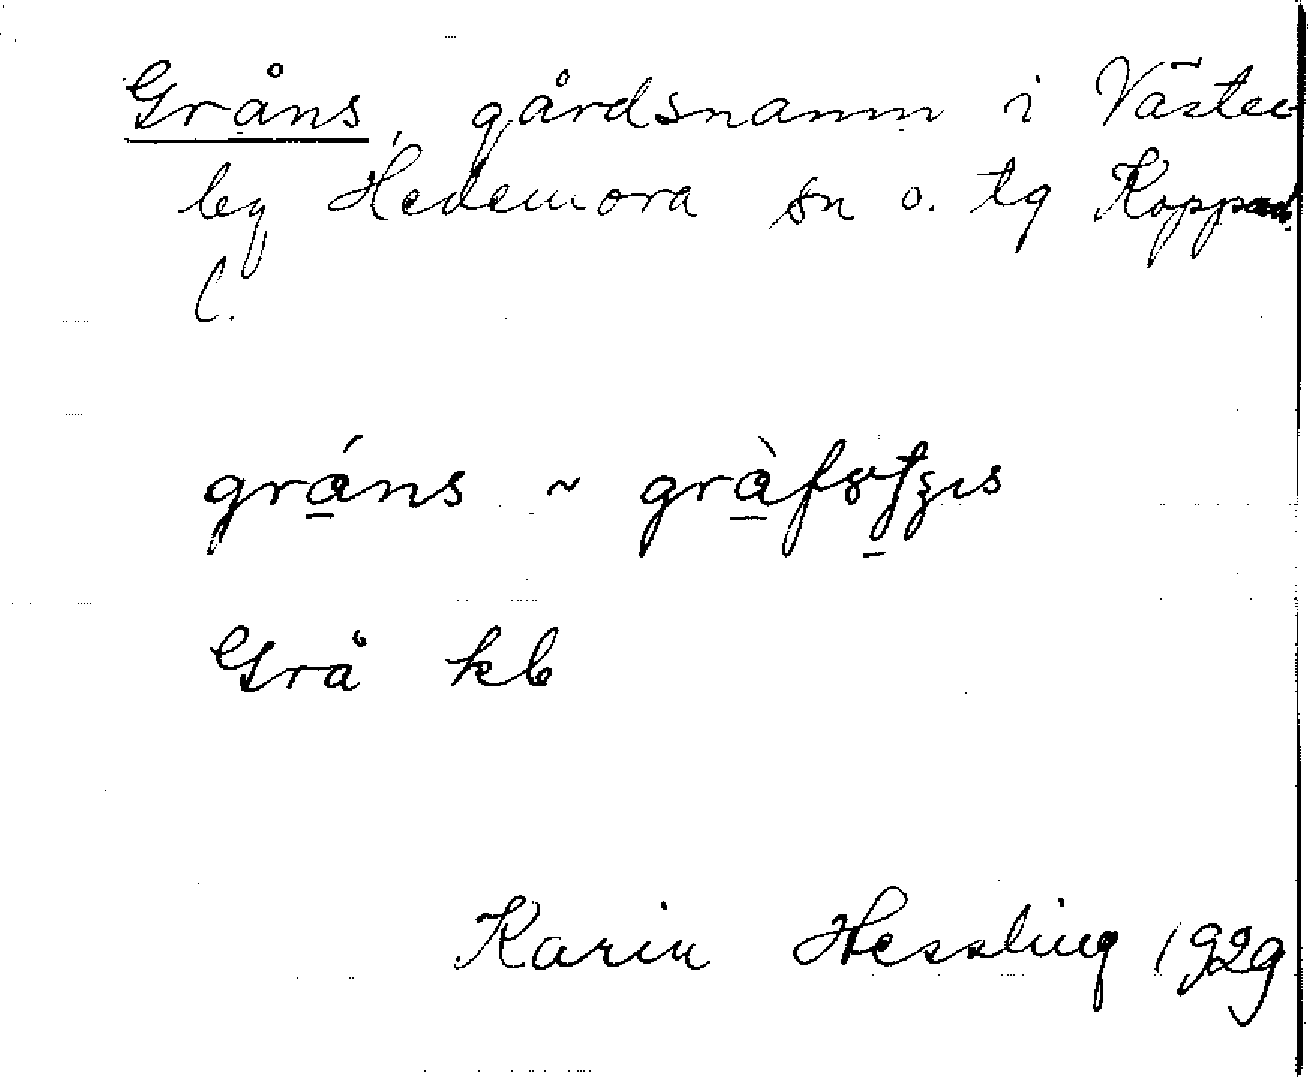 Gråns, gårdsnamn i Väster
by Hedemora sn o. tg Koppar
l.
gráns ~
Grå kb
Karin Hessling 1929